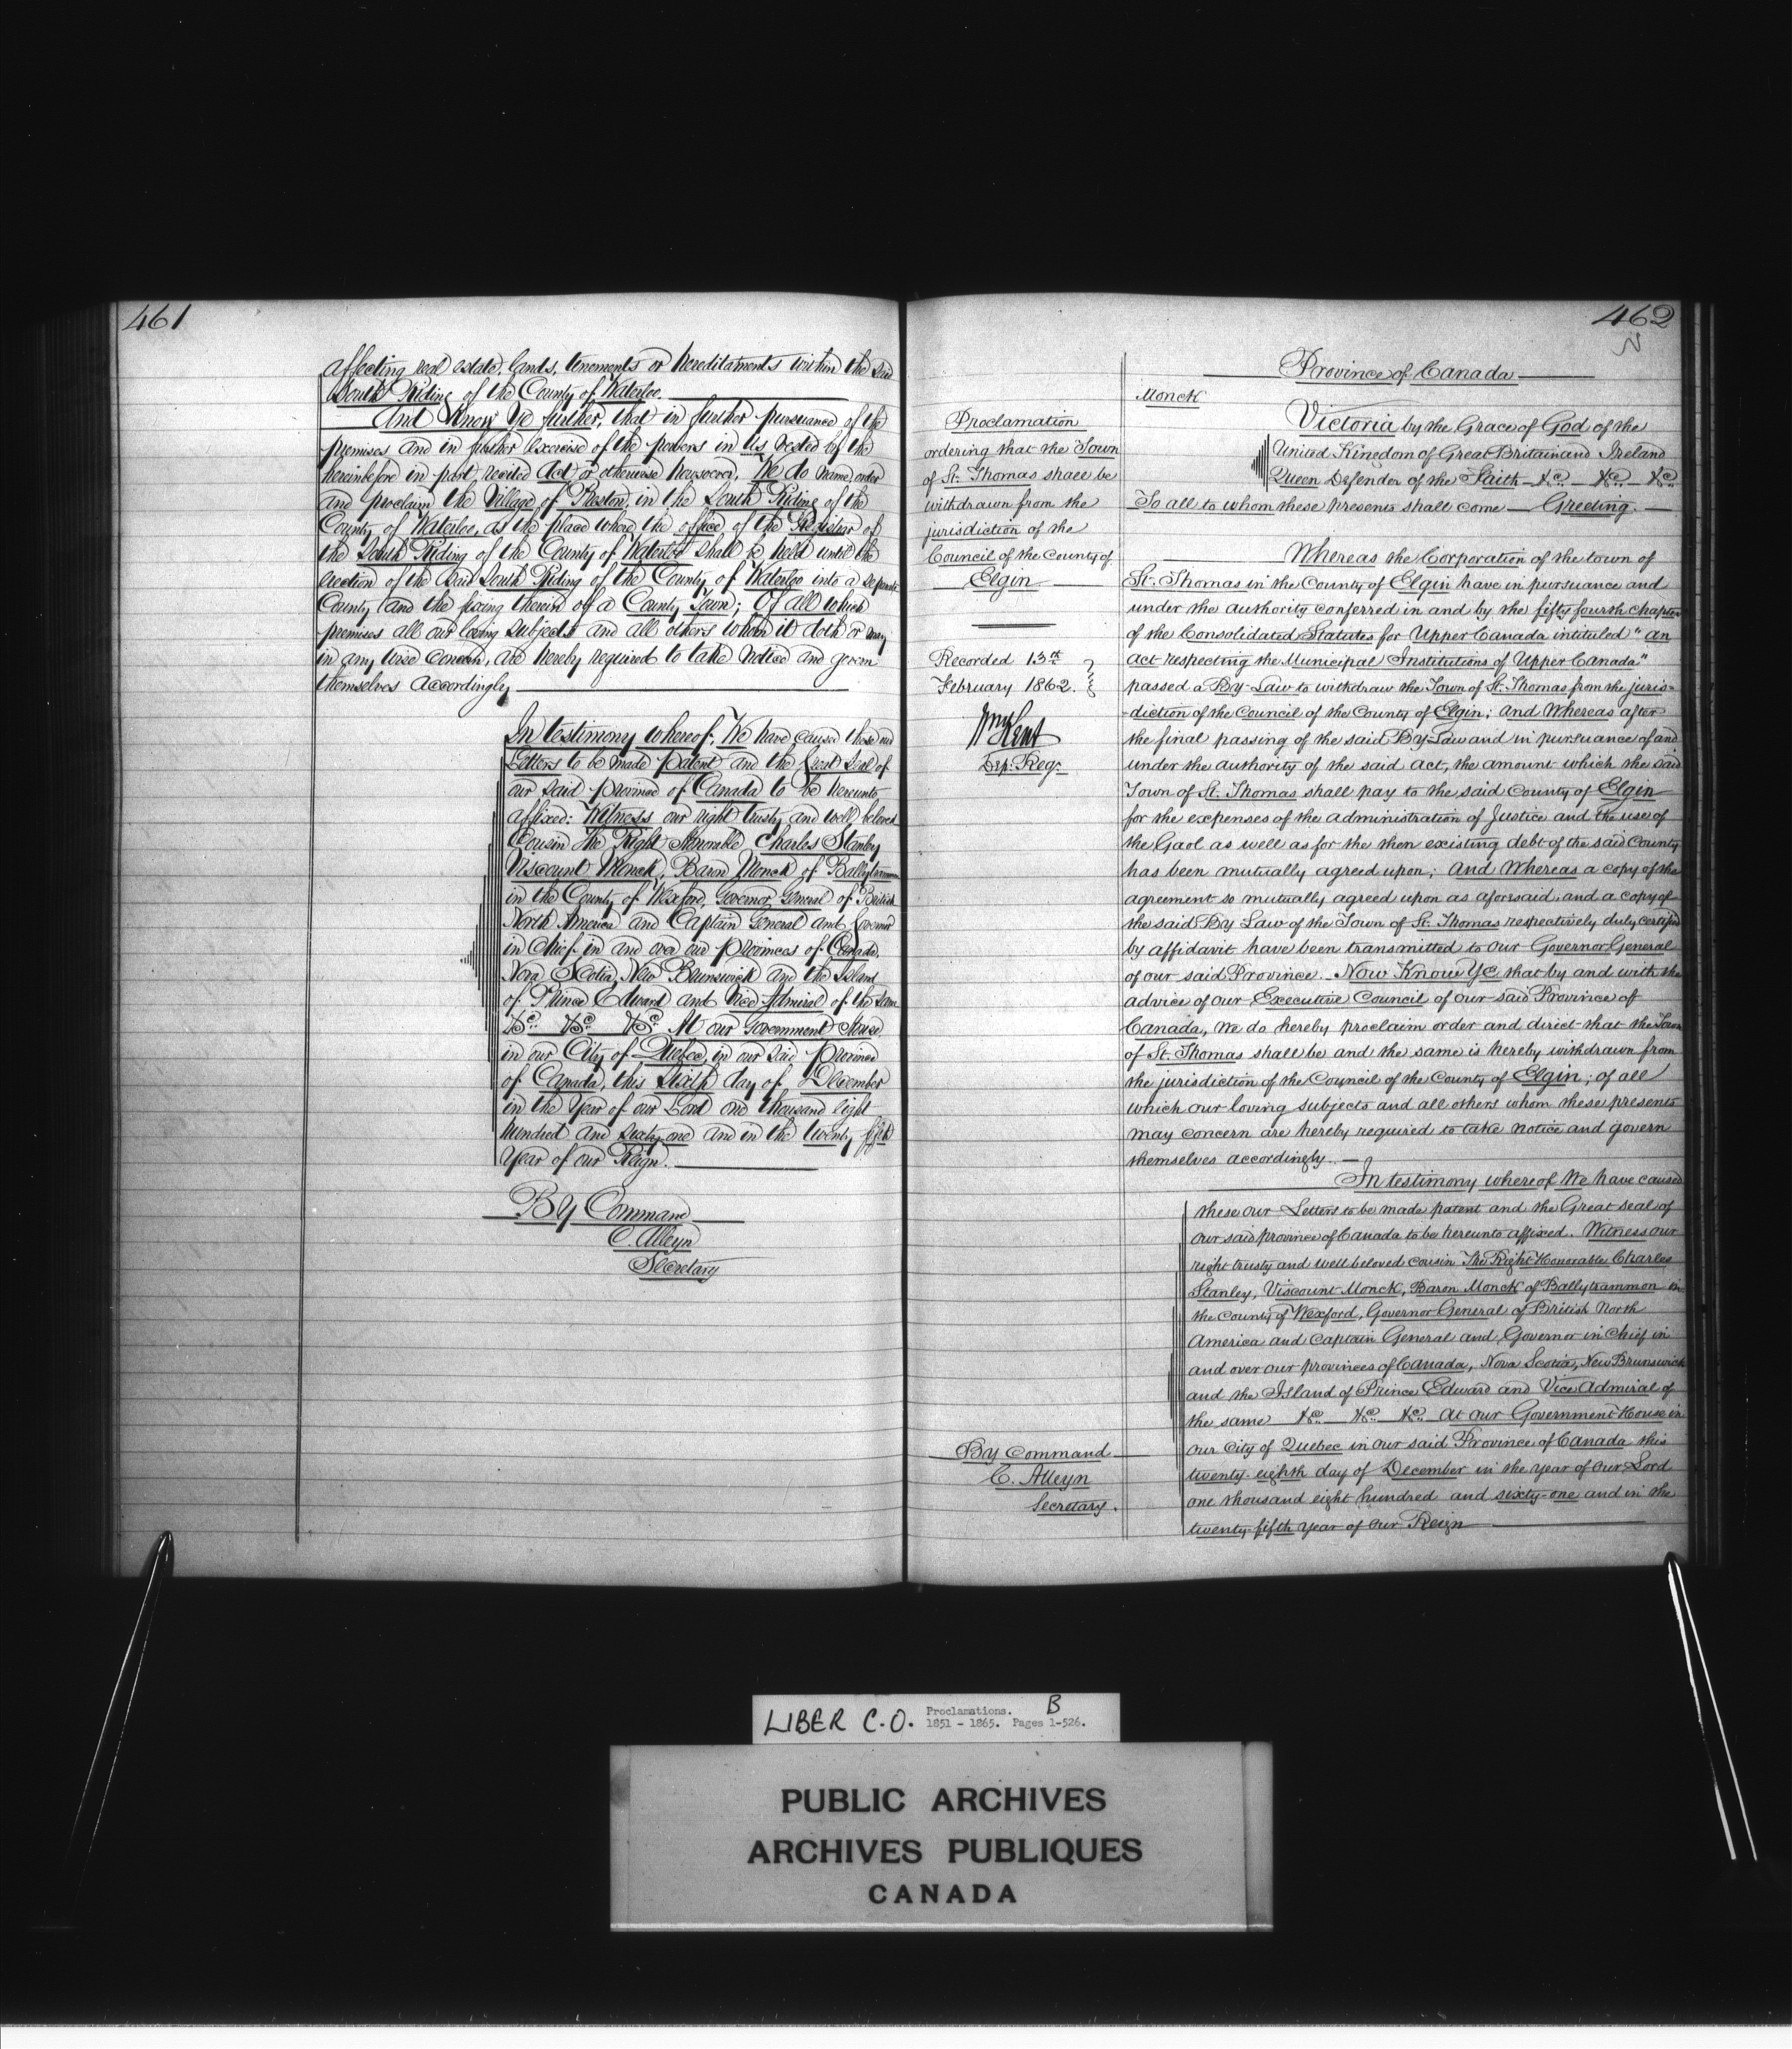 461
affecting real estate, lands, tenements or hereditaments within the said
South Riding of the County of Waterloo.
And Know Ye further, that in further pursuance of the
premises and in further exercise of the powers in us vested by the
hereinbefore in part recited Act or otherwise howsoever, We do name, order
and proclaim the Village of Preston, in the South Riding of the
County of Waterloo, as the place where the office of the Registrar of
the South Riding of the County of Waterloo shall be held until the
erection of the said South Riding of the County of Waterloo into a separate
County and the fixing therein of a County Town; Of all which
premises all our loving subjects and all others whom it doth or may
in any wise concern, are hereby required to take notice and govern
themselves accordingly
In testimony whereof, We have caused these our
Letters to be made patent and the Great Seal of
our said province of Canada to be hereunto
affixed: Witness our right trusty and well beloved
Cousin The Right Honorable Charles Stanley
Viscount Monck, Baron Monck of Ballytrammon
in the County of Wexford, Governor General of British
North America and Captain General and Governor
in Chief in and over our provinces of Canada,
Nova Scotia, New Brunswick and the Island
of Prince Edward and Vice Admiral of the same
&c. &c. &c. At our Government House
in our City of Quebec, in our said province
of Canada, this sixth day of December
in the Year of our Lord one thousand eight
hundred and sixty one and in the twenty fifth
Year of our Reign.
By Command
C. Alleyn
Secretary
462
Province of Canada
Monck
Proclamation
ordering that the Town
of St. Thomas shall be
withdrawn from the
jurisdiction of the
Council of the County of
Elgin
Recorded 13th
February 1862.
Wm Kent
Dep: Reg:
Victoria by the Grace of God of the
United Kingdom of Great Britain and Ireland
Queen Defender of the Faith &c. &c. &c.
To all to whom these presents shall come Greeting.
Whereas the Corporation of the town of
St. Thomas in the County of Elgin have in pursuance and
under the authority conferred in and by the fifty fourth chapter
of the Consolidated Statutes for Upper Canada intituled "an
act respecting the Municipal Institutions of Upper Canada"
passed a By-Law to withdraw the Town of St. Thomas from the juris-
-diction of the Council of the County of Elgin; and Whereas after
the final passing of the said By-Law and in pursuance of and
under the authority of the said act, the amount which the said
Town of St. Thomas shall pay to the said County of Elgin
for the expenses of the administration of Justice and the use of
the Gaol as well as for the then existing debt of the said County
has been mutually agreed upon; And Whereas a copy of the
agreement so mutually agreed upon as aforesaid, and a copy of
the said By Law of the Town of St. Thomas respectively duly certified
by affidavit have been transmitted to our Governor General
of our said Province. Now Know Ye that by and with the
advice of our Executive Council of our said Province of
Canada, We do hereby proclaim order and direct that the Town
of St. Thomas shall be and the same is hereby withdrawn from
the jurisdiction of the Council of the County of Elgin; of all
which our loving subjects and all others whom these presents
may concern are hereby required to take notice and govern
themselves accordingly.
In testimony whereof We have caused
these our Letters to be made patent and the Great seal of
our said province of Canada to be hereunto affixed. Witness our
right trusty and well beloved cousin The Right Honorable Charles
Stanley, Viscount Monck, Baron Monck of Ballytrammon in
the County of Wexford, Governor General of British North
America and Captain General and Governor in Chief in
and over our provinces of Canada, Nova Scotia, New Brunswick
and the Island of Prince Edward and Vice Admiral of
the same &c. &c. &c. at our Government House in
our City of Quebec in our said Province of Canada this
twenty-eighth day of December in the year of our Lord
one thousand eight hundred and sixty-one and in the
twenty-fifth year of our Reign
By Command
C. Alleyn
Secretary.
LIBER C.O. Proclamations. B
1851 - 1865. Pages 1-526.
PUBLIC ARCHIVES
ARCHIVES PUBLIQUES
CANADA